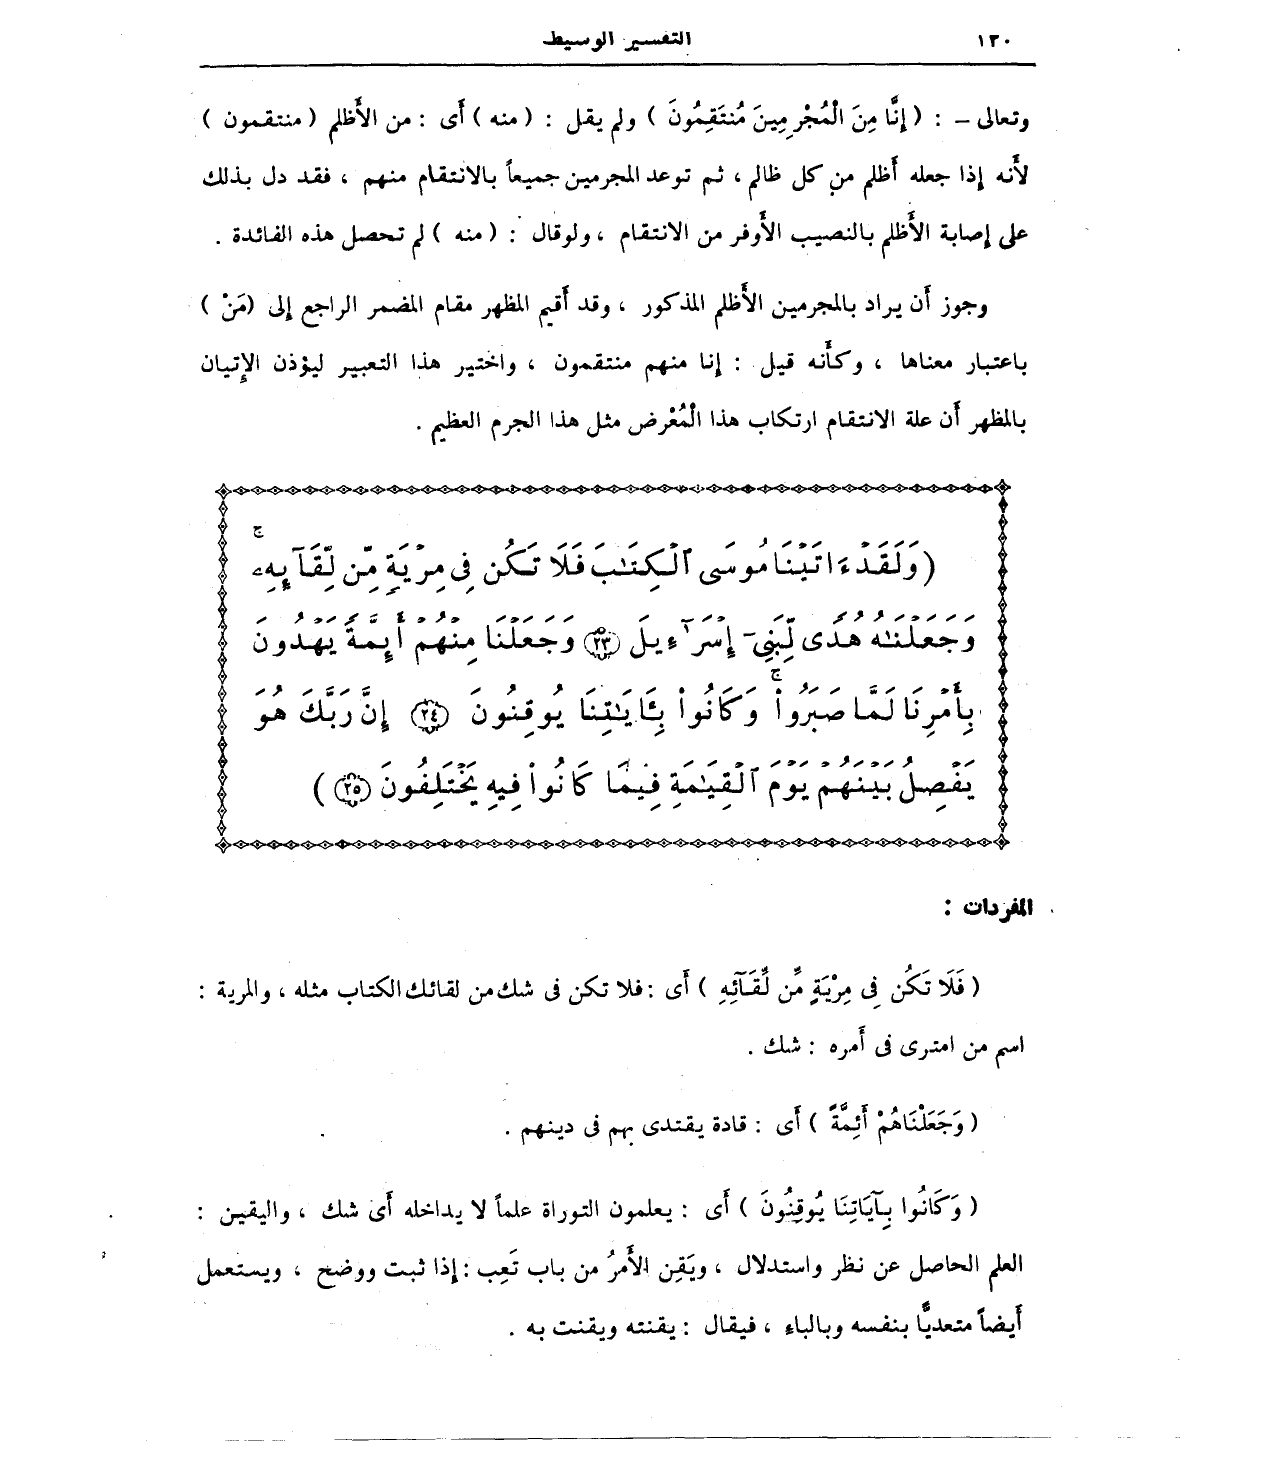 ١٣٠ التفسير الوسيط
وتعالى – : ( إِنَّا مِنَ الْمُجْرِمِينَ مُنتَقِمُونَ ) ولم يقل : ( منه ) أَى : من الأَظلم ( منتقمون )
لأَنه إذا جعله أَظلم من كل ظالم ، ثم توعد المجرمين جميعاً بالانتقام منهم ، فقد دل بذلك
على إصابة الأَظلم بالنصيب الأَوفر من الانتقام ، ولوقال : ( منه ) لم تحصل هذه الفائدة .
وجوز أَن يراد بالمجرمين الأَظلم المذكور ، وقد أُقيم المظهر مقام المضمر الراجع إلى (مَنْ )
باعتبار معناها ، وكأَنه قيل : إنا منهم منتقمون ، واختير هذا التعبير ليؤذن الإتيان
بالمظهر أَن علة الانتقام ارتكاب هذا الْمُعْرض مثل هذا الجرم العظيم .
( وَلَقَدْ ءَاتَيْنَا مُوسَى ٱلْكِتَـٰبَ فَلَا تَكُن فِى مِرْيَةٍ مِّن لِّقَآئِهِۦ ۖ
وَجَعَلْنَـٰهُ هُدًى لِّبَنِىٓ إِسْرَٰٓءِيلَ ﴿٢٣﴾ وَجَعَلْنَا مِنْهُمْ أَئِمَّةً يَهْدُونَ
بِأَمْرِنَا لَمَّا صَبَرُوا۟ ۖ وَكَانُوا۟ بِـَٔايَـٰتِنَا يُوقِنُونَ ﴿٢٤﴾ إِنَّ رَبَّكَ هُوَ
يَفْصِلُ بَيْنَهُمْ يَوْمَ ٱلْقِيَـٰمَةِ فِيمَا كَانُوا۟ فِيهِ يَخْتَلِفُونَ ﴿٢٥﴾ )
المفردات :
( فَلَا تَكُن فِى مِرْيَةٍ مِّن لِّقَآئِهِ ) أَى : فلا تكن فى شك من لقائك الكتاب مثله ، والمرية :
اسم من امترى فى أَمره : شك .
( وَجَعَلْنَاهُمْ أَئِمَّةً ) أَى : قادة يقتدى بهم فى دينهم .
( وَكَانُوا بِآيَاتِنَا يُوقِنُونَ ) أَى : يعلمون التوراة علماً لا يداخله أَى شك ، واليقين :
العلم الحاصل عن نظر واستدلال ، ويَقِن الأَمرُ من باب تَعِب : إذا ثبت ووضح ، ويستعمل
أَيضاً متعديًّا بنفسه وبالباء ، فيقال : يقنته ويقنت به .